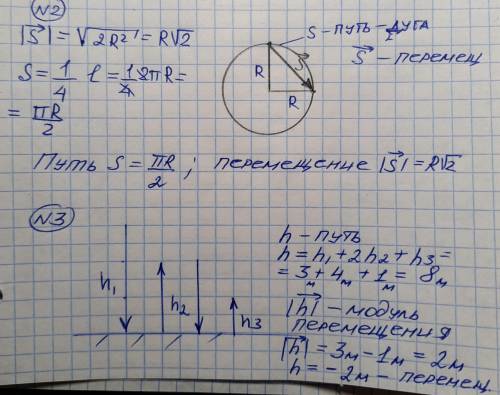 N2
|S⃗| = √2R² = R√2
S = 1/4 l = 1/4 2πR =
= πR/2
S – путь – дуга
S⃗
S⃗ – перемещ
R
R
Путь S = πR/2 ; перемещение |S⃗| = R√2
N3
h – путь
h = h₁ + 2h₂ + h₃ =
= 3м + 4м + 1м = 8м
|h⃗| – модуль
перемещения
|h⃗| = 3м – 1м = 2м
h = – 2м – перемещ.
h₁
h₂
h₃